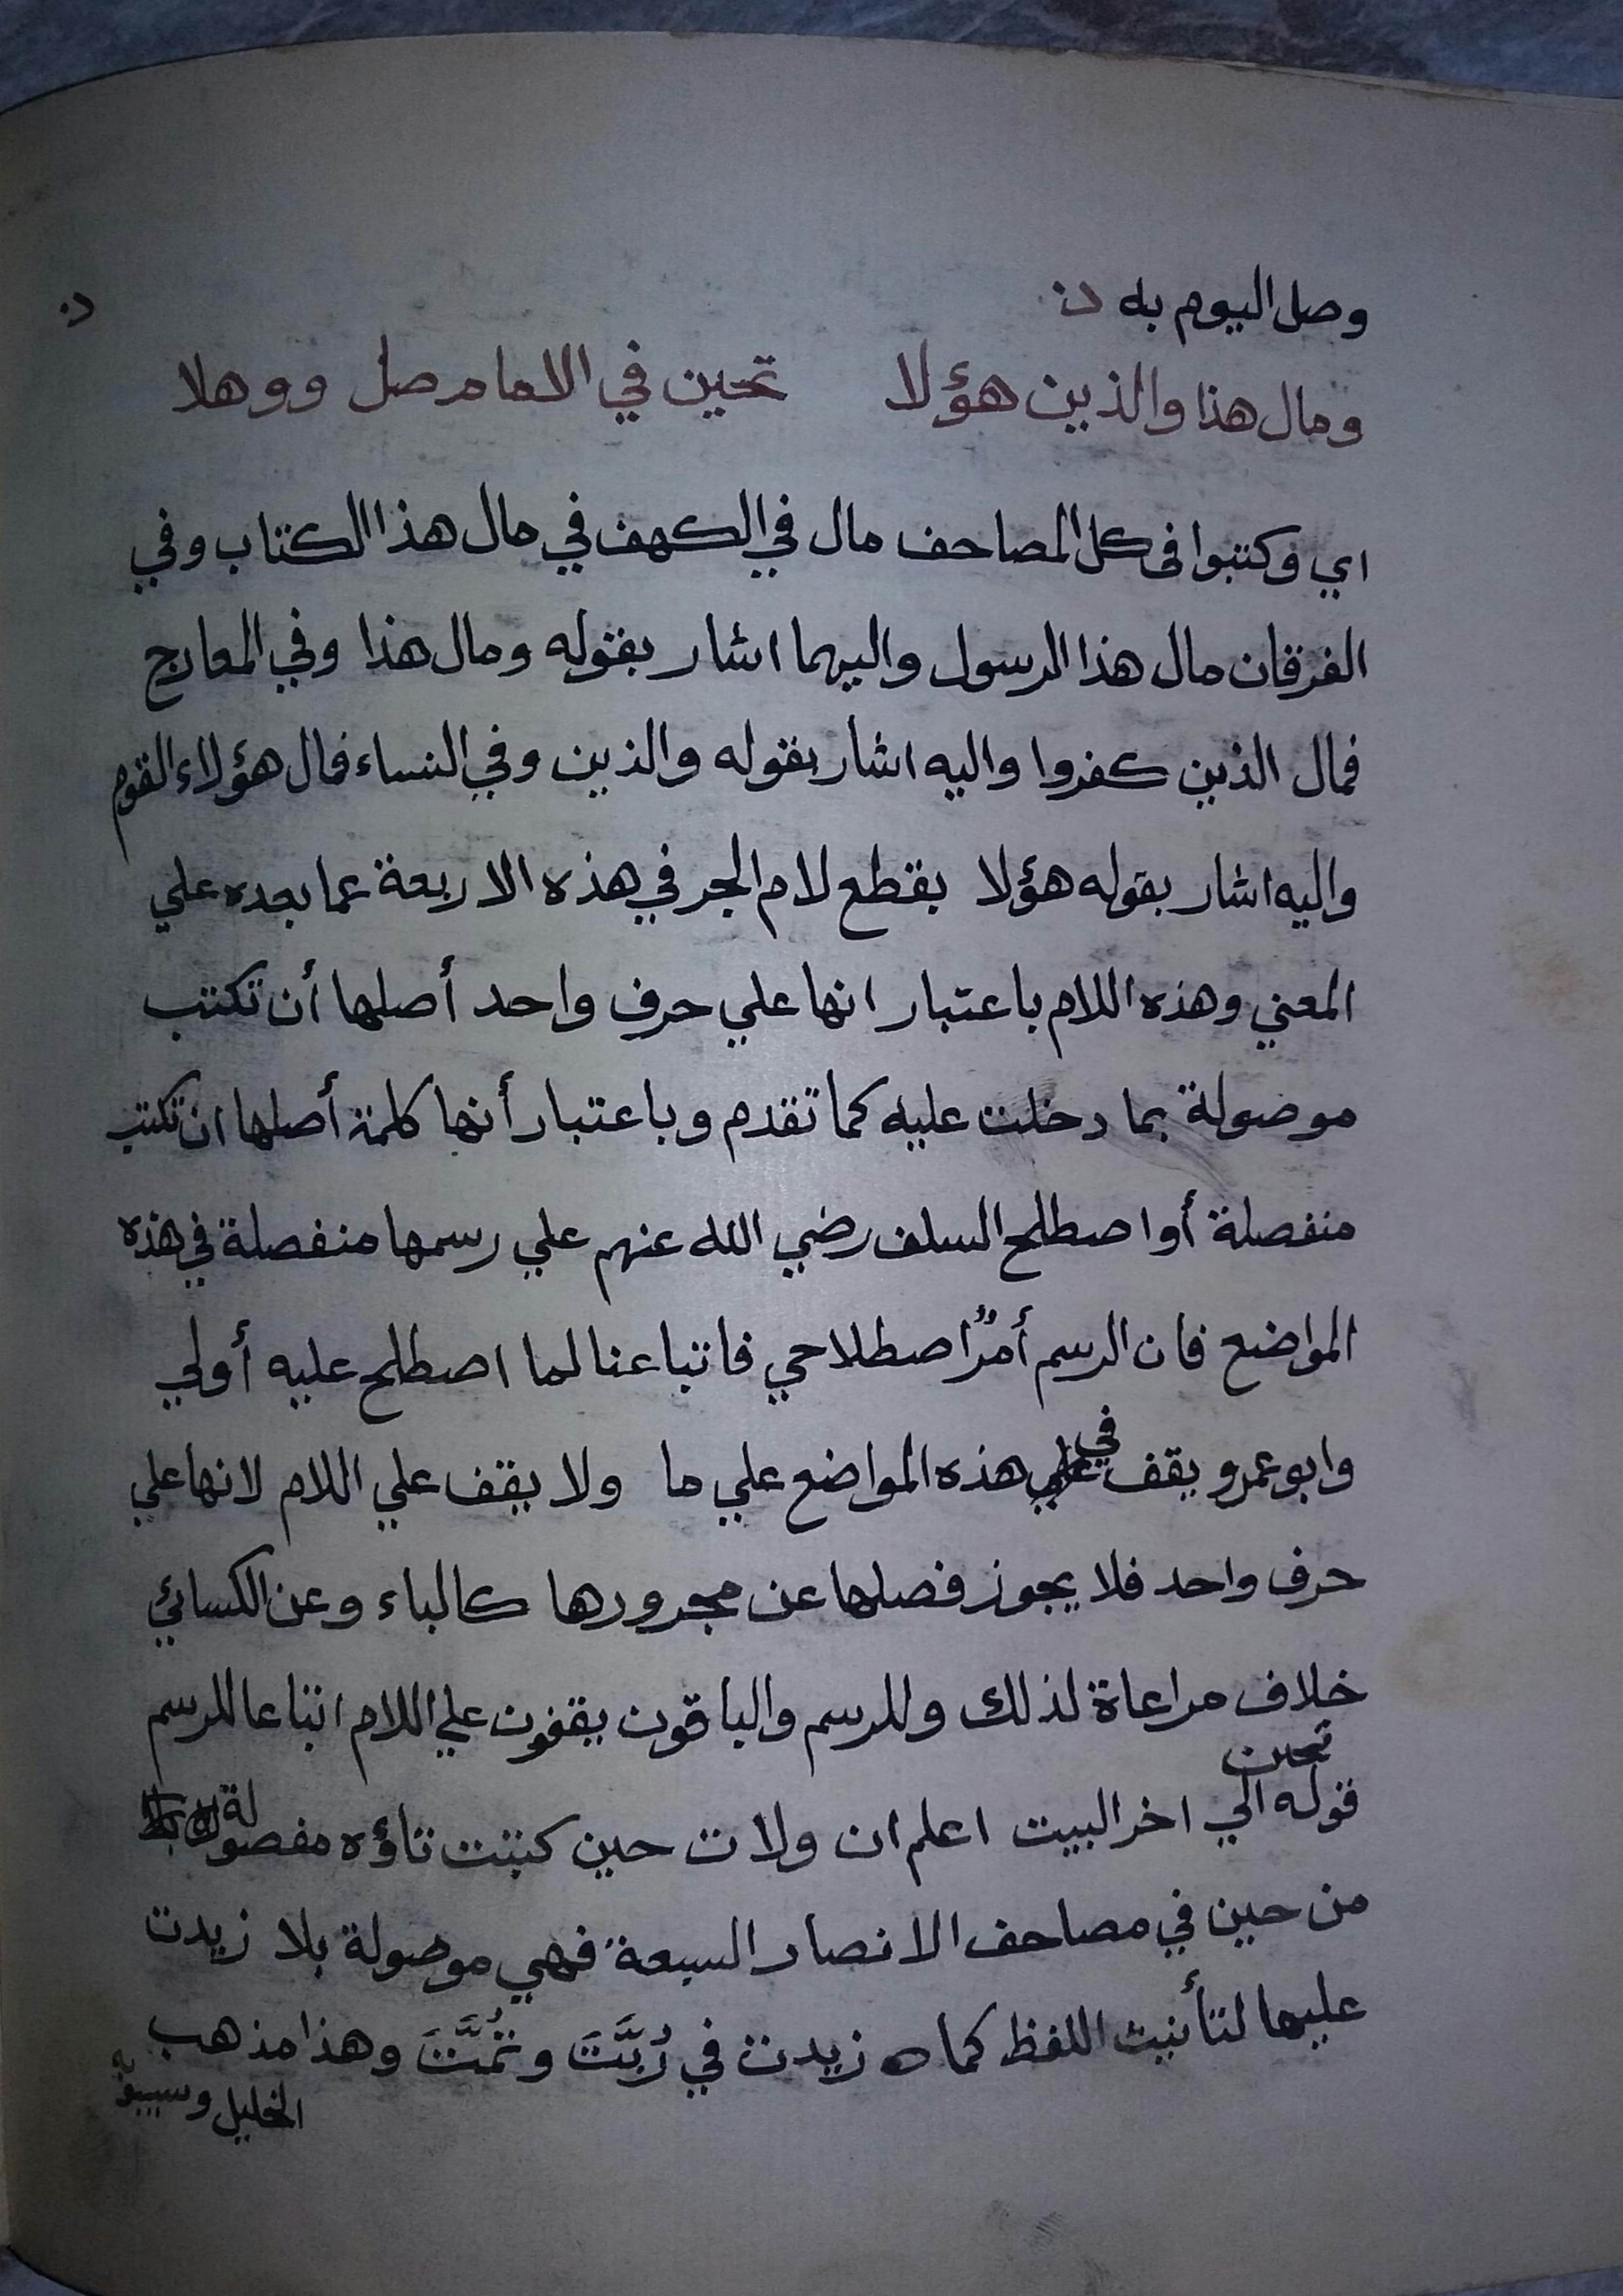 وصل اليوم به
ومال هذا والذين هؤلا تحين في الامام صل ووهلا
اي وكتبوا فى كل المصاحف مال في الكهف في مال هذا الكتاب وفي
الفرقان مال هذا الرسول واليهما اشار بقوله ومال هذا وفي المعارج
فمال الذين كفروا واليه اشار بقوله والذين وفي النساء فمال هؤلاء القوم
واليه اشار بقوله هؤلا بقطع لام الجر في هذه الاربعة عما بعده علي
المعني وهذه اللام باعتبار انها علي حرف واحد أصلها أن تكتب
موصولة بما دخلت عليه كما تقدم وباعتبار أنها كلمة أصلها ان تكتب
منفصلة أو اصطلح السلف رضي الله عنهم علي رسمها منفصلة في هذه
المواضع فان الرسم أمرٌ اصطلاحي فاتباعنا لما اصطلح عليه أولي
وابو عمرو يقف في هذه المواضع علي ما ولا يقف علي اللام لانها علي
حرف واحد فلا يجوز فصلها عن مجرورها كالباء وعن الكسائي
خلاف مراعاة لذلك وللرسم والباقون يقفون علي اللام اتباعا للرسم
قوله تحين الي اخر البيت اعلم ان ولات حين كتبت تاؤه مفصولة
من حين في مصاحف الانصار السبعة فهي موصولة بلا زيدت
عليها لتأنيث اللفظ كما زيدت في رُبَّتَ وثُمَّتَ وهذا مذهب
الخليل وسيبويه